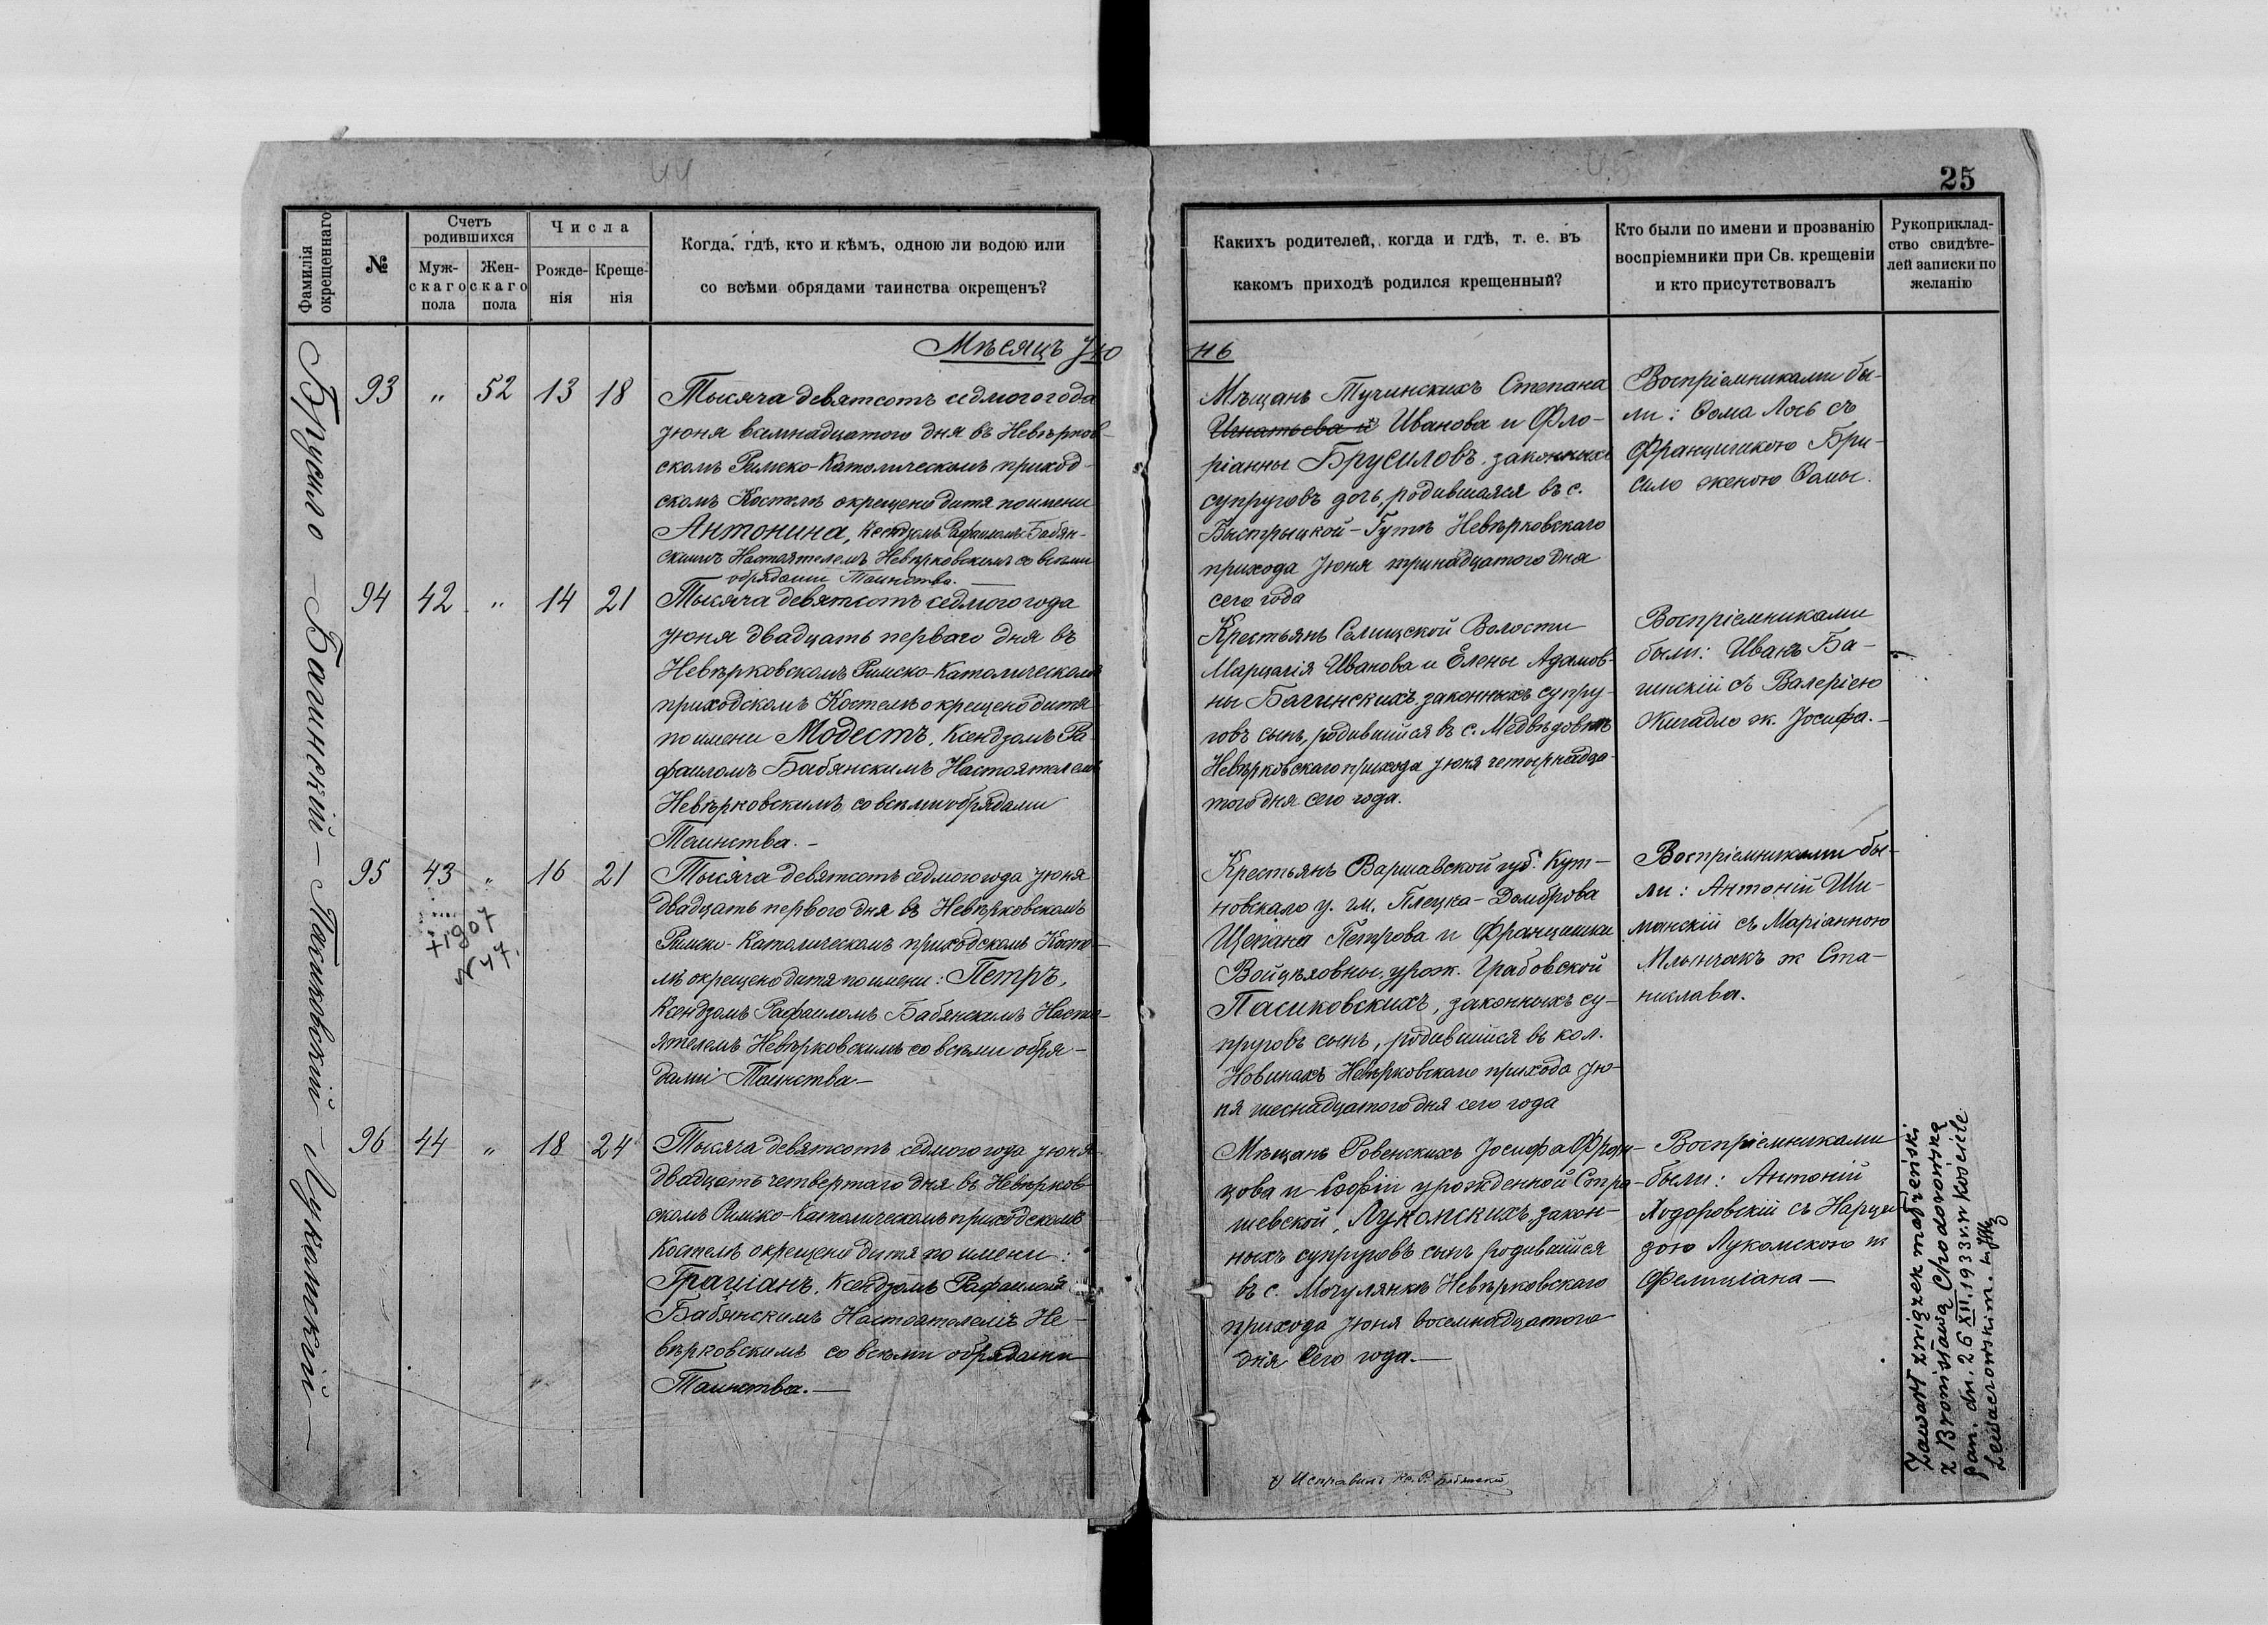 44
45
25
Фамилія окрещеннаго
№
Счетъ родившихся
Мужскаго пола
Женскаго пола
Числа
Рожденія
Крещенія
Когда, гдѣ, кто и кѣмъ, одною ли водою или
со всѣми обрядами таинства окрещенъ?
Какихъ родителей, когда и гдѣ, т. е. въ
какомъ приходѣ родился крещенный?
Кто были по имени и прозванію
воспріемники при Св. крещеніи
и кто присутствовалъ
Рукоприклад-
ство свидѣте-
лей записки по
желанію
Мѣсяцъ Іюнь
Брусило – Багинскій – Пасиковскій – Лукомскій –
93 " 52 13 18
Тысяча девятсотъ седмого года
Іюня восмнадцатого дня въ Невѣрков-
скомъ Римско-Католическомъ приход-
скомъ Костелѣ окрещено дитя по имени
Антонина, Ксендзомъ Рафаиломъ Бабян-
скимъ Настоятелемъ Невѣрковскимъ со всѣми
обрядами Таинства. —
Мѣщанъ Тучинскихъ Степана
Игнатьева и Иванова и Фло-
ріанны Брусиловъ законныхъ
супруговъ дочь, родившаяся въ с.
Быстрыцкой-Гутѣ Невѣрковскаго
прихода Іюня тринадцатого дня
сего года
Воспріемниками бы-
ли: Ѳома Лось съ
Францишкою Бру-
сило женою Ѳомы.
94 42 " 14 21
Тысяча девятсотъ седмого года
Іюня двадцать перваго дня въ
Невѣрковскомъ Римско-Католическомъ
приходскомъ Костелѣ окрещено дитя
по имени Модестъ, Ксендзомъ Ра-
фаиломъ Бабянскимъ Настоятелемъ
Невѣрковскимъ со всѣми обрядами
Таинства. –
Крестьянъ Селищской Волости
Марцелія Иванова и Елены Адамов-
ны Багинскихъ законныхъ супру-
говъ сынъ, родившійся въ с. Медвѣдовкѣ
Невѣрковскаго прихода Іюня четырнадца-
того дня сего года.
Воспріемниками
были: Иванъ Ба-
гинскій съ Валеріею
Жигадло ж. Іосифа. –
95 43 " 16 21
+1907
N 47.
Тысяча девятсотъ седмого года Іюня
двадцать первого дня въ Невѣрковскомъ
Римско-Католическомъ приходскомъ Косте-
лѣ окрещено дитя по имени: Петръ,
Ксендзомъ Рафаиломъ Бабянскимъ Насто-
ятелемъ Невѣрковскимъ со всѣми обря-
дами Таинства –
Крестьянъ Варшавской губ. Кут-
новскаго у. гм. Плецка-Домброва
Щепана Петрова и Францишки
Войцѣховны, урож. Грабовской
Пасиковскихъ, законныхъ су-
пруговъ сынъ, родившійся въ кол.
Новинахъ Невѣрковскаго прихода Ію-
ня шеснадцатого дня сего года
Воспріемниками бы-
ли: Антоній Ши-
манскій съ Маріанною
Млынчакъ ж Ста-
нислава.
96 44 " 18 24
Тысяча девятсотъ седмого года Іюня
двадцать четвертаго дня въ Невѣрков-
скомъ Римско-Католическомъ приходскомъ
Костелѣ окрещено дитя по имени:
Граціанъ, Ксендзомъ Рафаиломъ
Бабянскимъ Настоятелемъ Не-
вѣрковскимъ со всѣми обрядами
Таинства. —
Мѣщанъ Ровенскихъ Іосифа Фран-
цова и Софіи урожденной Стра-
шевской, Лукомскихъ закон-
ныхъ супруговъ сынъ родившійся
въ с. Могулянкѣ Невѣрковскаго
прихода Іюня восемнадцатого
дня сего года. —
Воспріемниками
были: Антоній
Ходоровскій съ Нарци-
зою Лукомскою ж
Фелиціана —
Zawarł związek małżeński
z Bronisławą Chodorowską
dn. 26 XII. 1933 r. w kościele
Исправилъ Кс. Р. Бабянскій